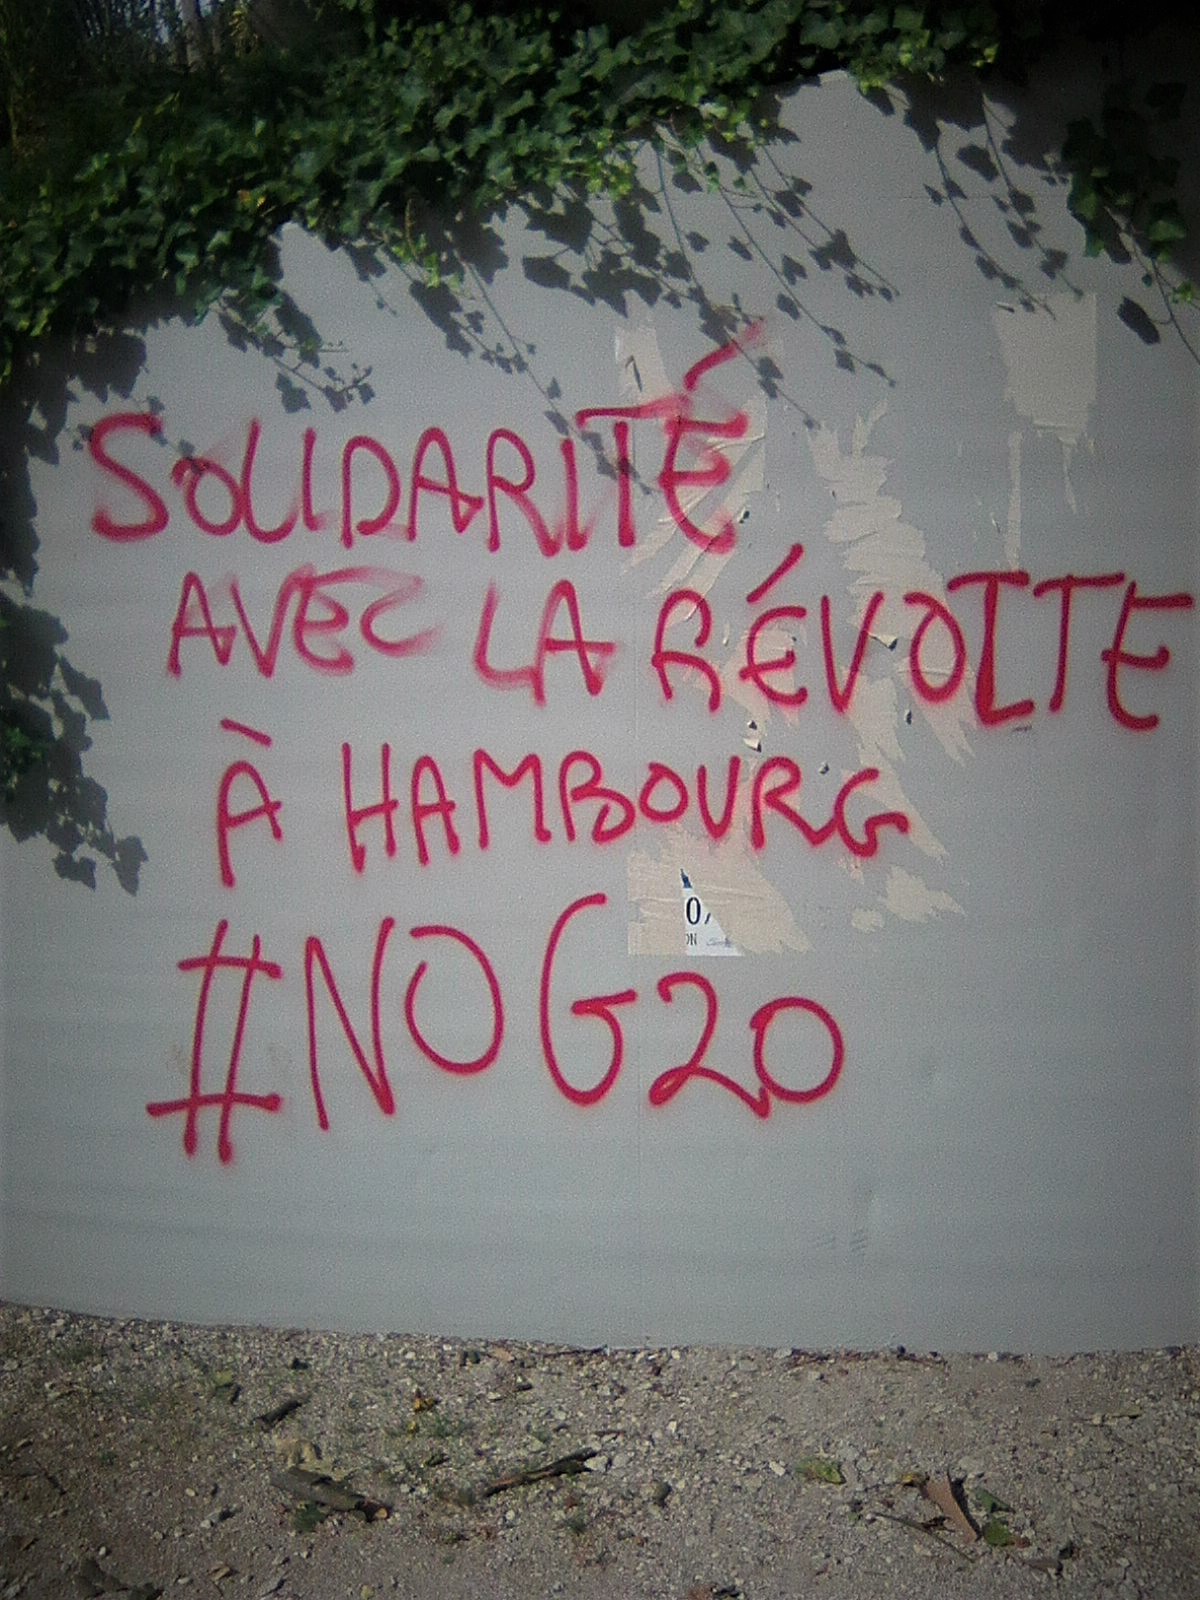 SOLIDARITÉ
AVEC LA RÉVOLTE
À HAMBOURG
0
ON
#NOG20